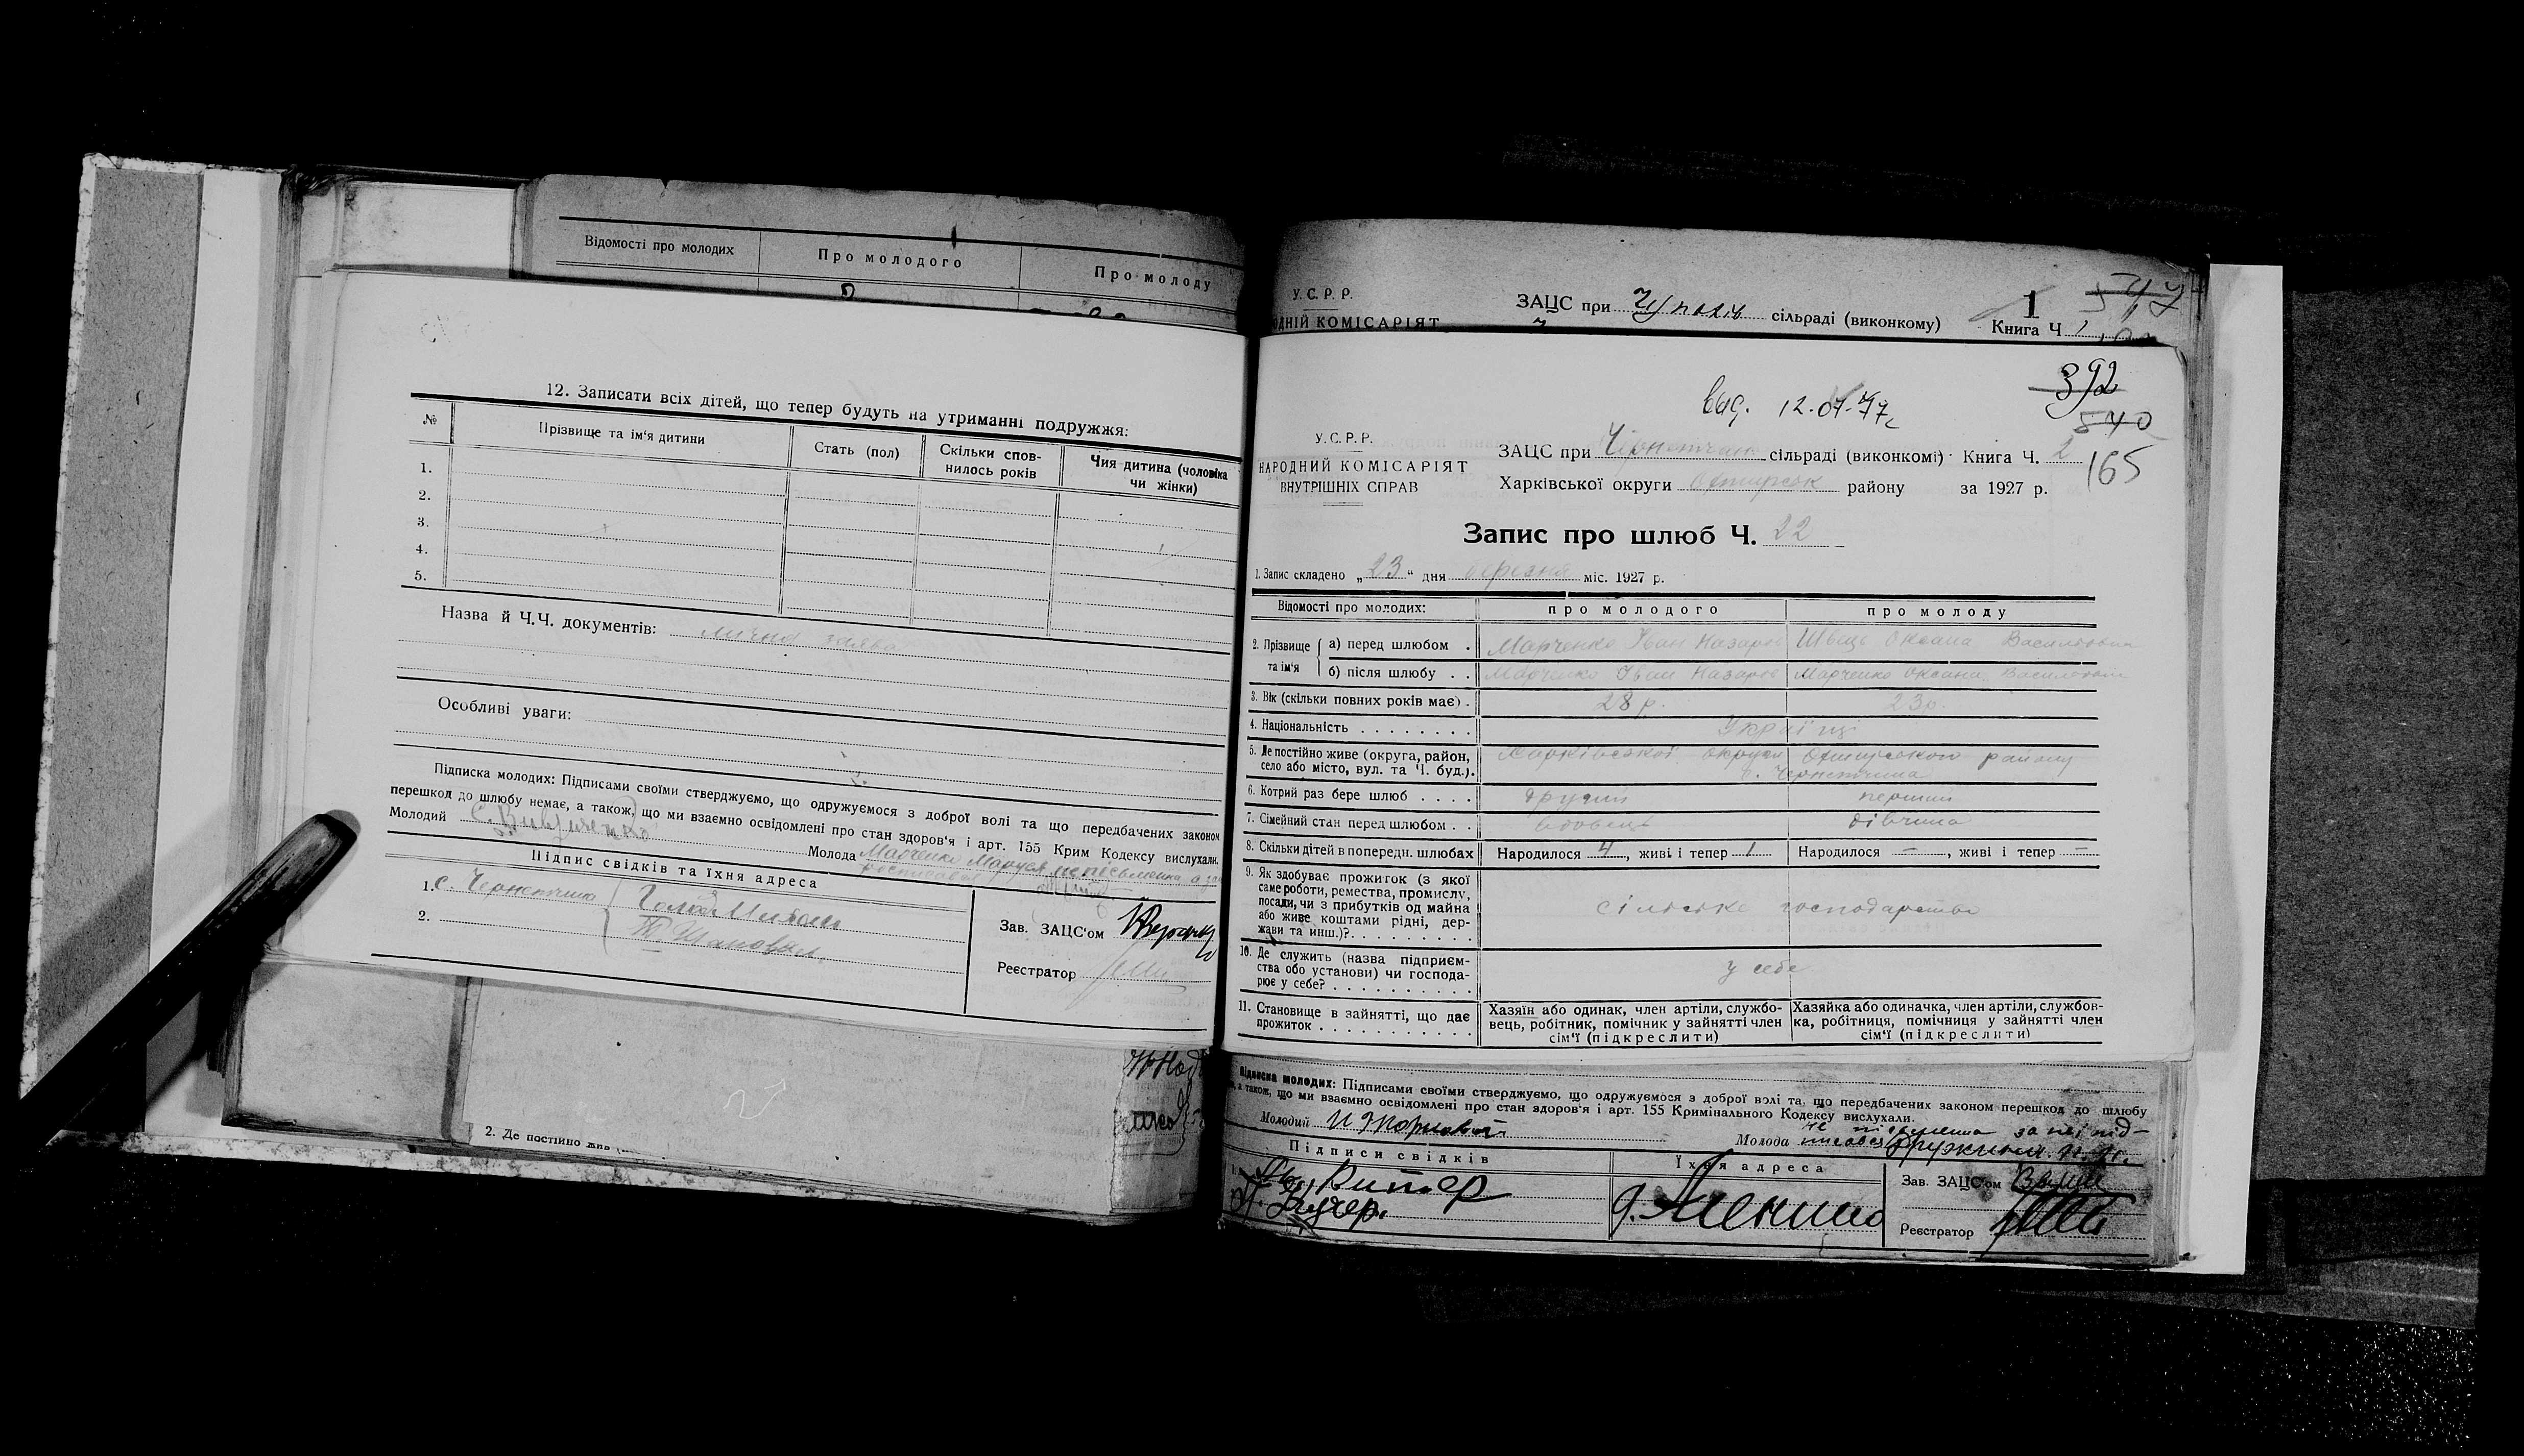 Відомості про молодих
Про молодого
Про молоду
12. Записати всіх дітей, що тепер будуть на утриманні подружжя:
№
Прізвище та ім'я дитини
Стать (пол)
Скільки спов-
нилось років
Чия дитина (чоловіка
чи жінки)
1.
2.
3.
4.
5.
Назва й Ч.Ч. документів: лична заява
Особливі уваги:
Підписка молодих: Підписами своїми стверджуємо, що одружуємося з доброї волі та що передбачених законом
перешкод до шлюбу немає, а також, що ми взаємно освідомлені про стан здоров'я і арт. 155 Крим Кодексу вислухали.
Молодий
Молода Марченко Маруся не письменна а за
Підпис свідків та їхня адреса
1. с. Чернетчина
2.
Зав. ЗАЦС'ом
Реєстратор
2. Де постійно жив
У.С.Р.Р.
ОДНІЙ КОМІСАРІЯТ
ЗАЦС при сільраді (виконкому)
1
Книга Ч 1
392
вид. 12.07.77г
540
165
У.С.Р.Р.
НАРОДНИЙ КОМІСАРІЯТ
ВНУТРІШНІХ СПРАВ
ЗАЦС при сільраді (виконкомі) Книга Ч. 2
Харківської округи Охтирськ району за 1927 р.
Запис про шлюб Ч. 22
1. Запис складено „23" дня березня міс. 1927 р.
Відомості про молодих:
про молодого
про молоду
2. Прізвище та ім'я
а) перед шлюбом . Марченко Іван Назаров Швець Оксана Васильовна
б) після шлюбу . . Марченко Іван Назаров Марченко Оксана Васильовна
3. Вік (скільки повних років має) . 28 р. 23 р.
4. Національність . . . . . . . . Українці
5. Де постійно живе (округа, район, Харківської округи Охтирського району
село або місто, вул. та Ч. буд.). с. Чернетчина
6. Котрий раз бере шлюб . . . . другий перший
7. Сімейний стан перед шлюбом . . вдовець дівчина
8. Скільки дітей в попередн. шлюбах Народилося 4, живі і тепер 1 Народилося –, живі і тепер –
9. Як здобуває прожиток (з якої
саме роботи, ремества, промислу,
посади, чи з прибутків од майна
або живе коштами рідні, дер-
жави та инш.)?. . . . . . . . .
сільське господарство
10. Де служить (назва підприєм-
ства обо установи) чи господа-
рює у себе? . . . . . . . . . .
у себе
11. Становище в зайнятті, що дає
прожиток . . . . . . . . . . .
Хазяїн або одинак, член артіли, службо-
вець, робітник, помічник у зайнятті член
сім'ї (підкреслити)
Хазяйка або одиначка, член артіли, службов-
ка, робітниця, помічниця у зайнятті член
сім'ї (підкреслити)
Підписка молодих: Підписами своїми стверджуємо, що одружуємося з доброї волі та, що передбачених законом перешкод до шлюбу
а також, що ми взаємно освідомлені про стан здоров'я і арт. 155 Кримінального Кодексу вислухали.
Молодий
Молода
Підписи свідків
Їхня адреса
Зав. ЗАЦС'ом
Реєстратор